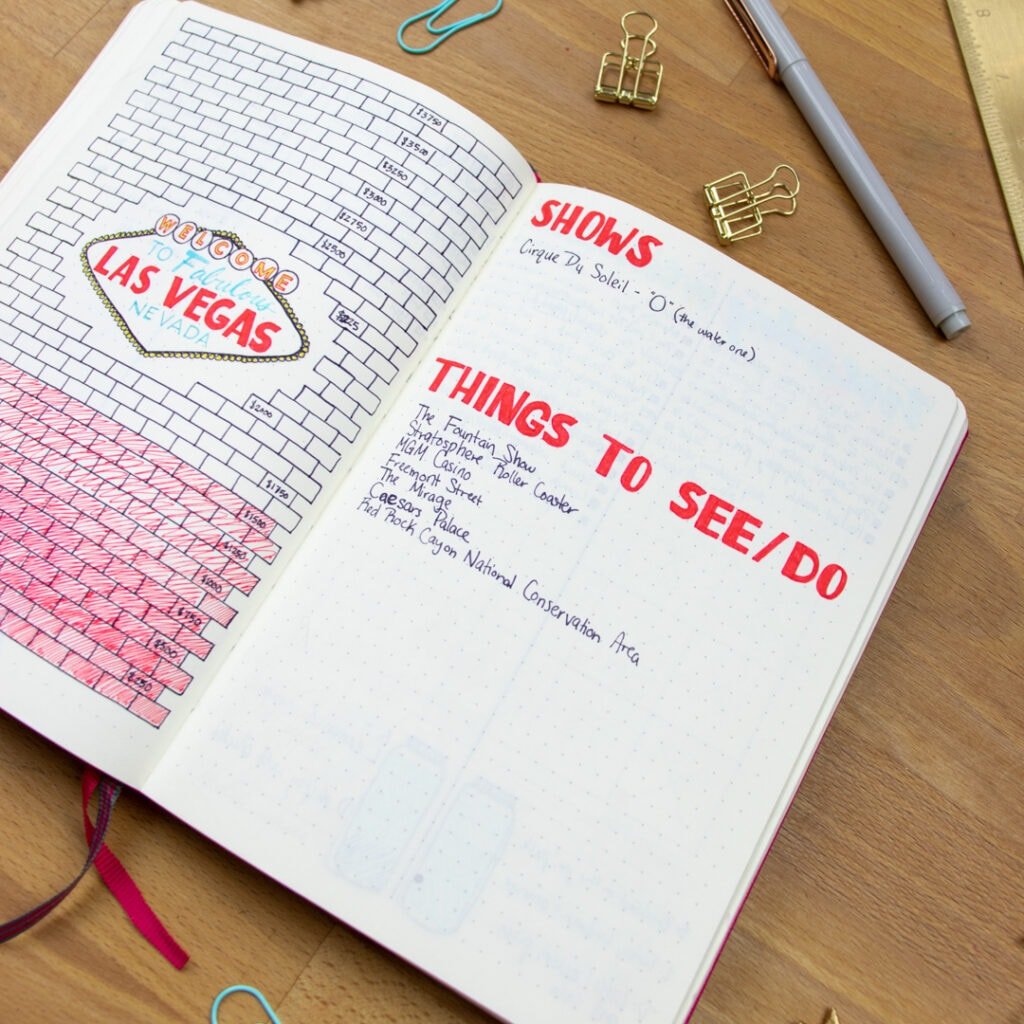 $3750
$3500
$3250
$3000
$2750
$2500
WELCOME
TO Fabulous
LAS VEGAS
NEVADA
$2000
$1750
$1500
$1250
$1000
$750
$500
$250
SHOWS
Cirque Du Soleil - "O" (the water one)
THINGS TO SEE/DO
The Fountain Show
Stratosphere Roller Coaster
MGM Casino
Freemont Street
The Mirage
Caesars Palace
Red Rock Cayon National Conservation Area
8